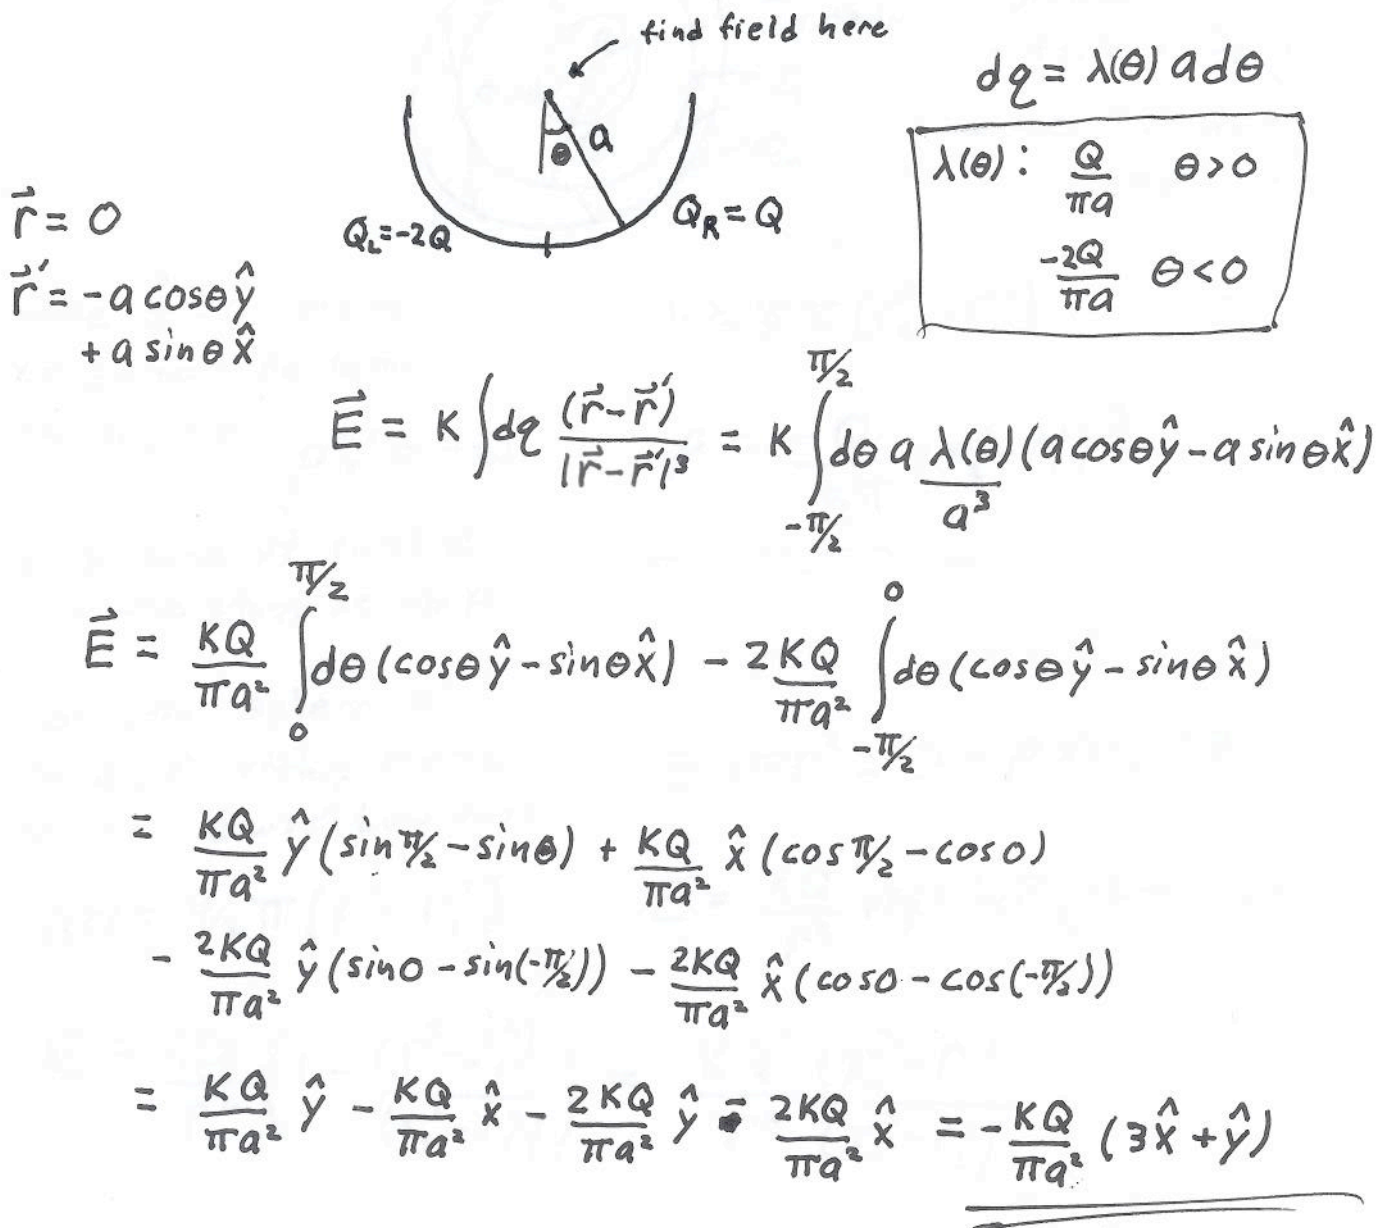 find field here
dq = λ(θ) a dθ
θ a
λ(θ): Q/πa θ>0
-2Q/πa θ<0
Q_L=-2Q Q_R=Q
r⃗ = 0
r⃗′ = -a cosθ ŷ
+ a sinθ x̂
E⃗ = K ∫dq (r⃗-r⃗′)/|r⃗-r⃗′|³ = K ∫_{-π/2}^{π/2} dθ a λ(θ)/a³ (a cosθ ŷ - a sinθ x̂)
E⃗ = KQ/πa² ∫_0^{π/2} dθ (cosθ ŷ - sinθ x̂) - 2KQ/πa² ∫_{-π/2}^0 dθ (cosθ ŷ - sinθ x̂)
= KQ/πa² ŷ (sin π/2 - sin0) + KQ/πa² x̂ (cos π/2 - cos0)
- 2KQ/πa² ŷ (sin0 - sin(-π/2)) - 2KQ/πa² x̂ (cos0 - cos(-π/2))
= KQ/πa² ŷ - KQ/πa² x̂ - 2KQ/πa² ŷ - 2KQ/πa² x̂ = -KQ/πa² (3x̂ + ŷ)